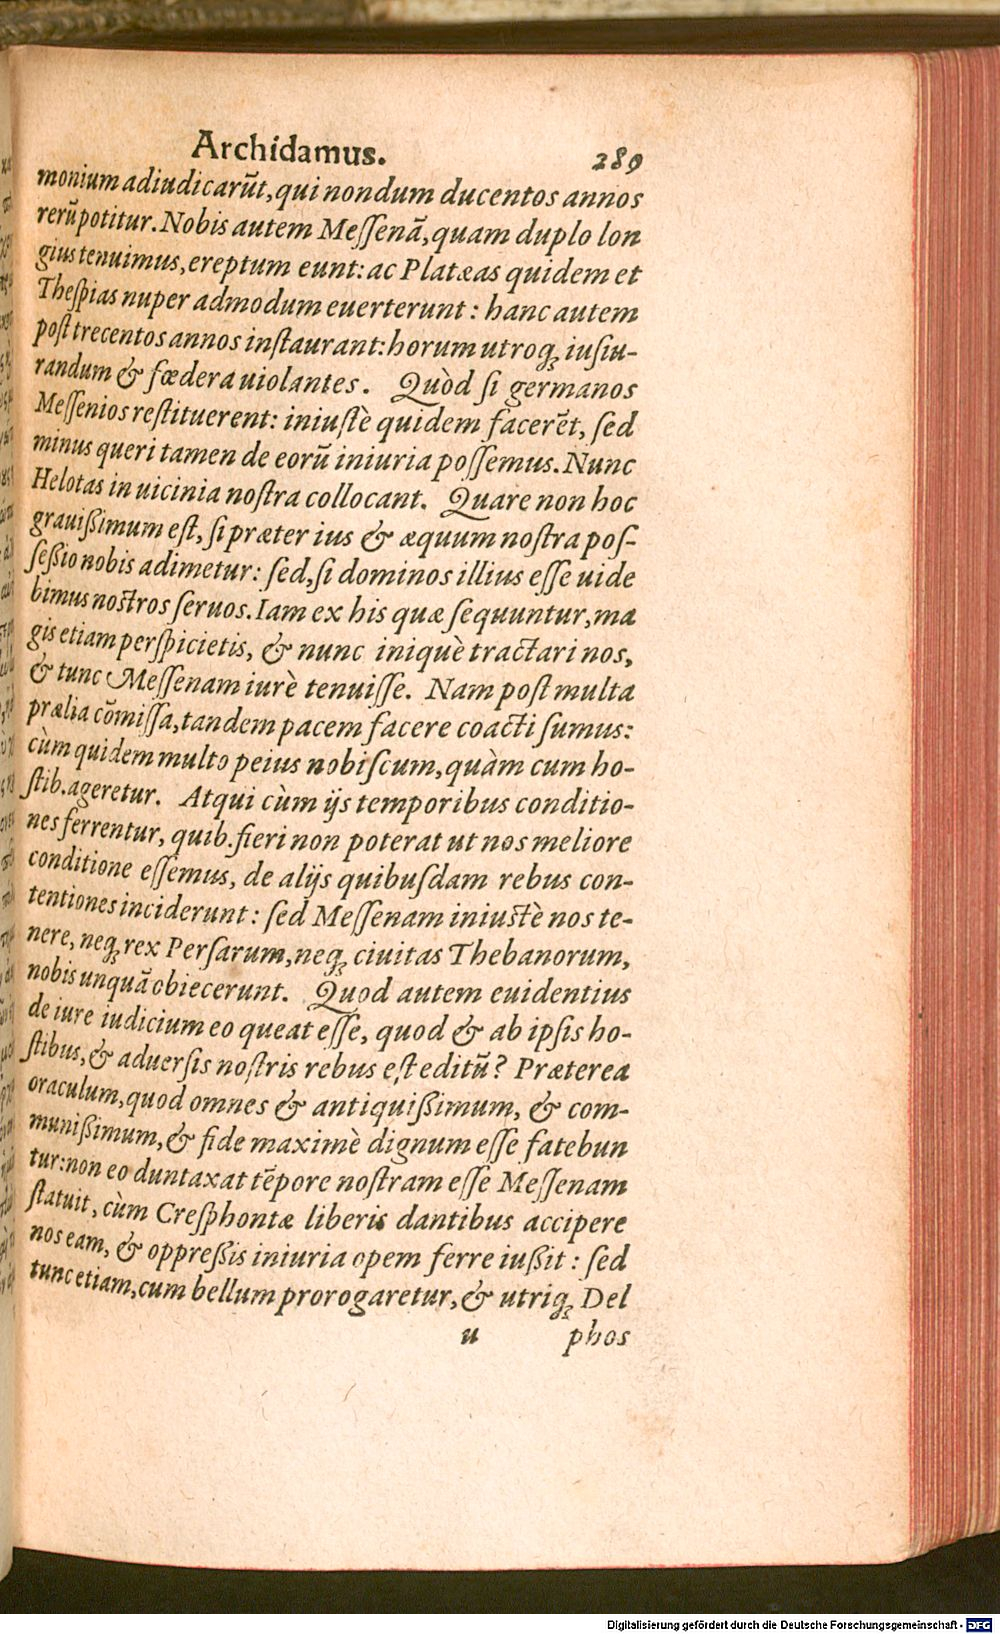 Archidamus. 289
monium adiudicarūt, qui nondum ducentos annos
rerū potitur. Nobis autem Meſſenā, quam duplo lon
gius tenuimus, ereptum eunt: ac Platæas quidem et
Theſpias nuper admodum euerterunt: hanc autem
poſt trecentos annos inſtaurant: horum utroq; iuſiu-
randum & fœdera uiolantes. Quòd ſi germanos
Meſſenios reſtituerent: iniuſtè quidem facerēt, ſed
minus queri tamen de eorū iniuria poſſemus. Nunc
Helotas in uicinia noſtra collocant. Quare non hoc
grauißimum eſt, ſi præter ius & æquum noſtra poſ-
ſeßio nobis adimetur: ſed, ſi dominos illius eſſe uide
bimus noſtros ſeruos. Iam ex his quæ ſequuntur, ma
gis etiam perſpicietis, & nunc iniquè tractari nos,
& tunc Meſſenam iurè tenuiſſe. Nam poſt multa
prælia cōmiſſa, tandem pacem facere coacti ſumus:
cùm quidem multo peius nobiſcum, quàm cum ho-
ſtib. ageretur. Atqui cùm ijs temporibus conditio-
nes ferrentur, quib. fieri non poterat ut nos meliore
conditione eſſemus, de alijs quibuſdam rebus con-
tentiones inciderunt: ſed Meſſenam iniuſtè nos te-
nere, neq; rex Perſarum, neq; ciuitas Thebanorum,
nobis unquā obiecerunt. Quod autem euidentius
de iure iudicium eo queat eſſe, quod & ab ipſis ho-
ſtibus, & aduerſis noſtris rebus eſt editū? Præterea
oraculum, quod omnes & antiquißimum, & com-
munißimum, & fide maximè dignum eſſe fatebun
tur: non eo duntaxat tēpore noſtram eſſe Meſſenam
ſtatuit, cùm Creſphontæ liberis dantibus accipere
nos eam, & oppreßis iniuria opem ferre iußit: ſed
tunc etiam, cum bellum prorogaretur, & utriq; Del
u phos
Digitalisierung gefördert durch die Deutsche Forschungsgemeinschaft - DFG